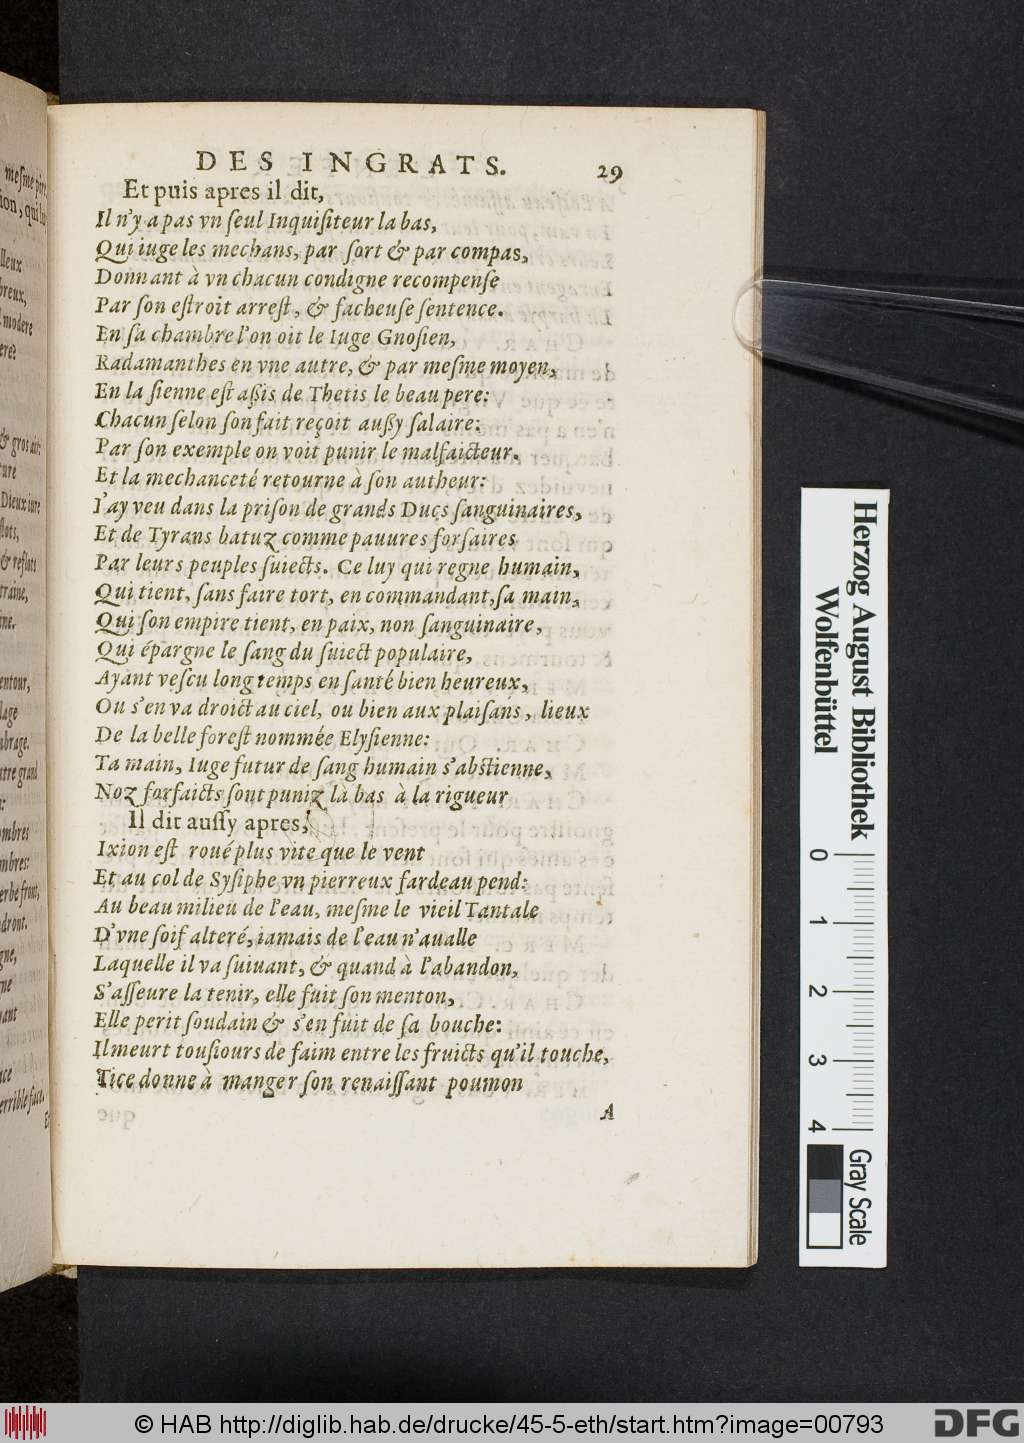 DES INGRATS. 29
Et puis apres il dit,
Il n'y a pas vn ſeul Inquiſiteur la bas,
Qui iuge les mechans, par ſort & par compas,
Donnant à vn chacun condigne recompenſe
Par ſon eſtroit arreſt, & facheuſe ſentence.
En ſa chambre l'on oit le Iuge Gnoſien,
Radamanthes en vne autre, & par meſme moyen,
En la ſienne eſt aßis de Thetis le beau pere:
Chacun ſelon ſon fait reçoit außy ſalaire:
Par ſon exemple on voit punir le malfaicteur.
Et la mechanceté retourne à ſon autheur:
I'ay veu dans la priſon de grands Ducs ſanguinaires,
Et de Tyrans batuz comme pauures forſaires
Par leurs peuples ſuiects. Ce luy qui regne humain,
Qui tient, ſans faire tort, en commandant, ſa main,
Qui ſon empire tient, en paix, non ſanguinaire,
Qui épargne le ſang du ſuiect populaire,
Ayant veſcu long temps en ſanté bien heureux,
Ou s'en va droict au ciel, ou bien aux plaiſans, lieux
De la belle foreſt nommée Elyſienne:
Ta main, Iuge futur de ſang humain s'abstienne,
Noz forfaicts ſont puniz là bas à la rigueur
Il dit auſſy apres,
Ixion eſt roué plus vite que le vent
Et au col de Syſiphe vn pierreux fardeau pend:
Au beau milieu de l'eau, meſme le vieil Tantale
D'vne ſoif alteré, iamais de l'eau n'aualle
Laquelle il va ſuiuant, & quand à l'abandon,
S'aſſeure la tenir, elle fuit ſon menton,
Elle perit ſoudain & s'en fuit de ſa bouche:
Il meurt touſiours de faim entre les fruicts qu'il touche,
Tice donne à manger ſon renaiſſant poumon
A
Herzog August Bibliothek
Wolfenbüttel
0 1 2 3 4
Gray Scale
© HAB http://diglib.hab.de/drucke/45-5-eth/start.htm?image=00793
DFG